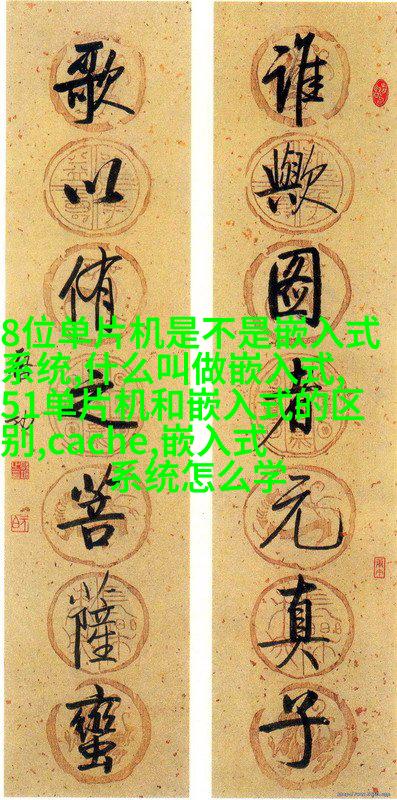 谁歟图者元真子
歌以侑之菩薩蠻
8位单片机是不是嵌入式
系统,什么叫做嵌入式,
51单片机和嵌入式的区
别,cache,嵌入式
系统怎么学